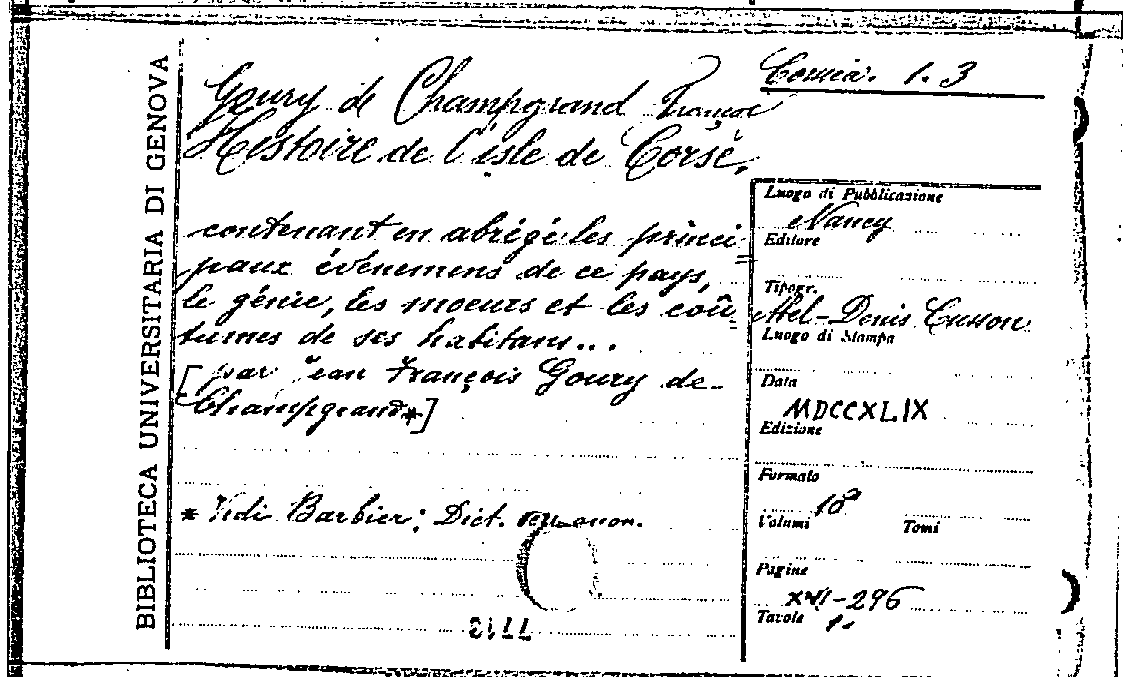 BIBLIOTECA UNIVERSITARIA DI GENOVA
Corsica. 1. 3
Goury de Champgrand François
Histoire de l'isle de Corse,
contenant en abrégé les princi=
paux événemens de ce pays,
le génie, les moeurs et les coû=
tumes de ses habitans...
[par Jean François Goury de-
Champgrand*]
* Vedi Barbier; Dict. anon.
Luogo di Pubblicazione
Nancy
Editore
Tipogr.
Abel-Denis Cusson
Luogo di Stampa
Data
MDCCXLIX
Edizione
Formato
Volumi
Tomi
Pagine
XVI-296
Tavole
1.